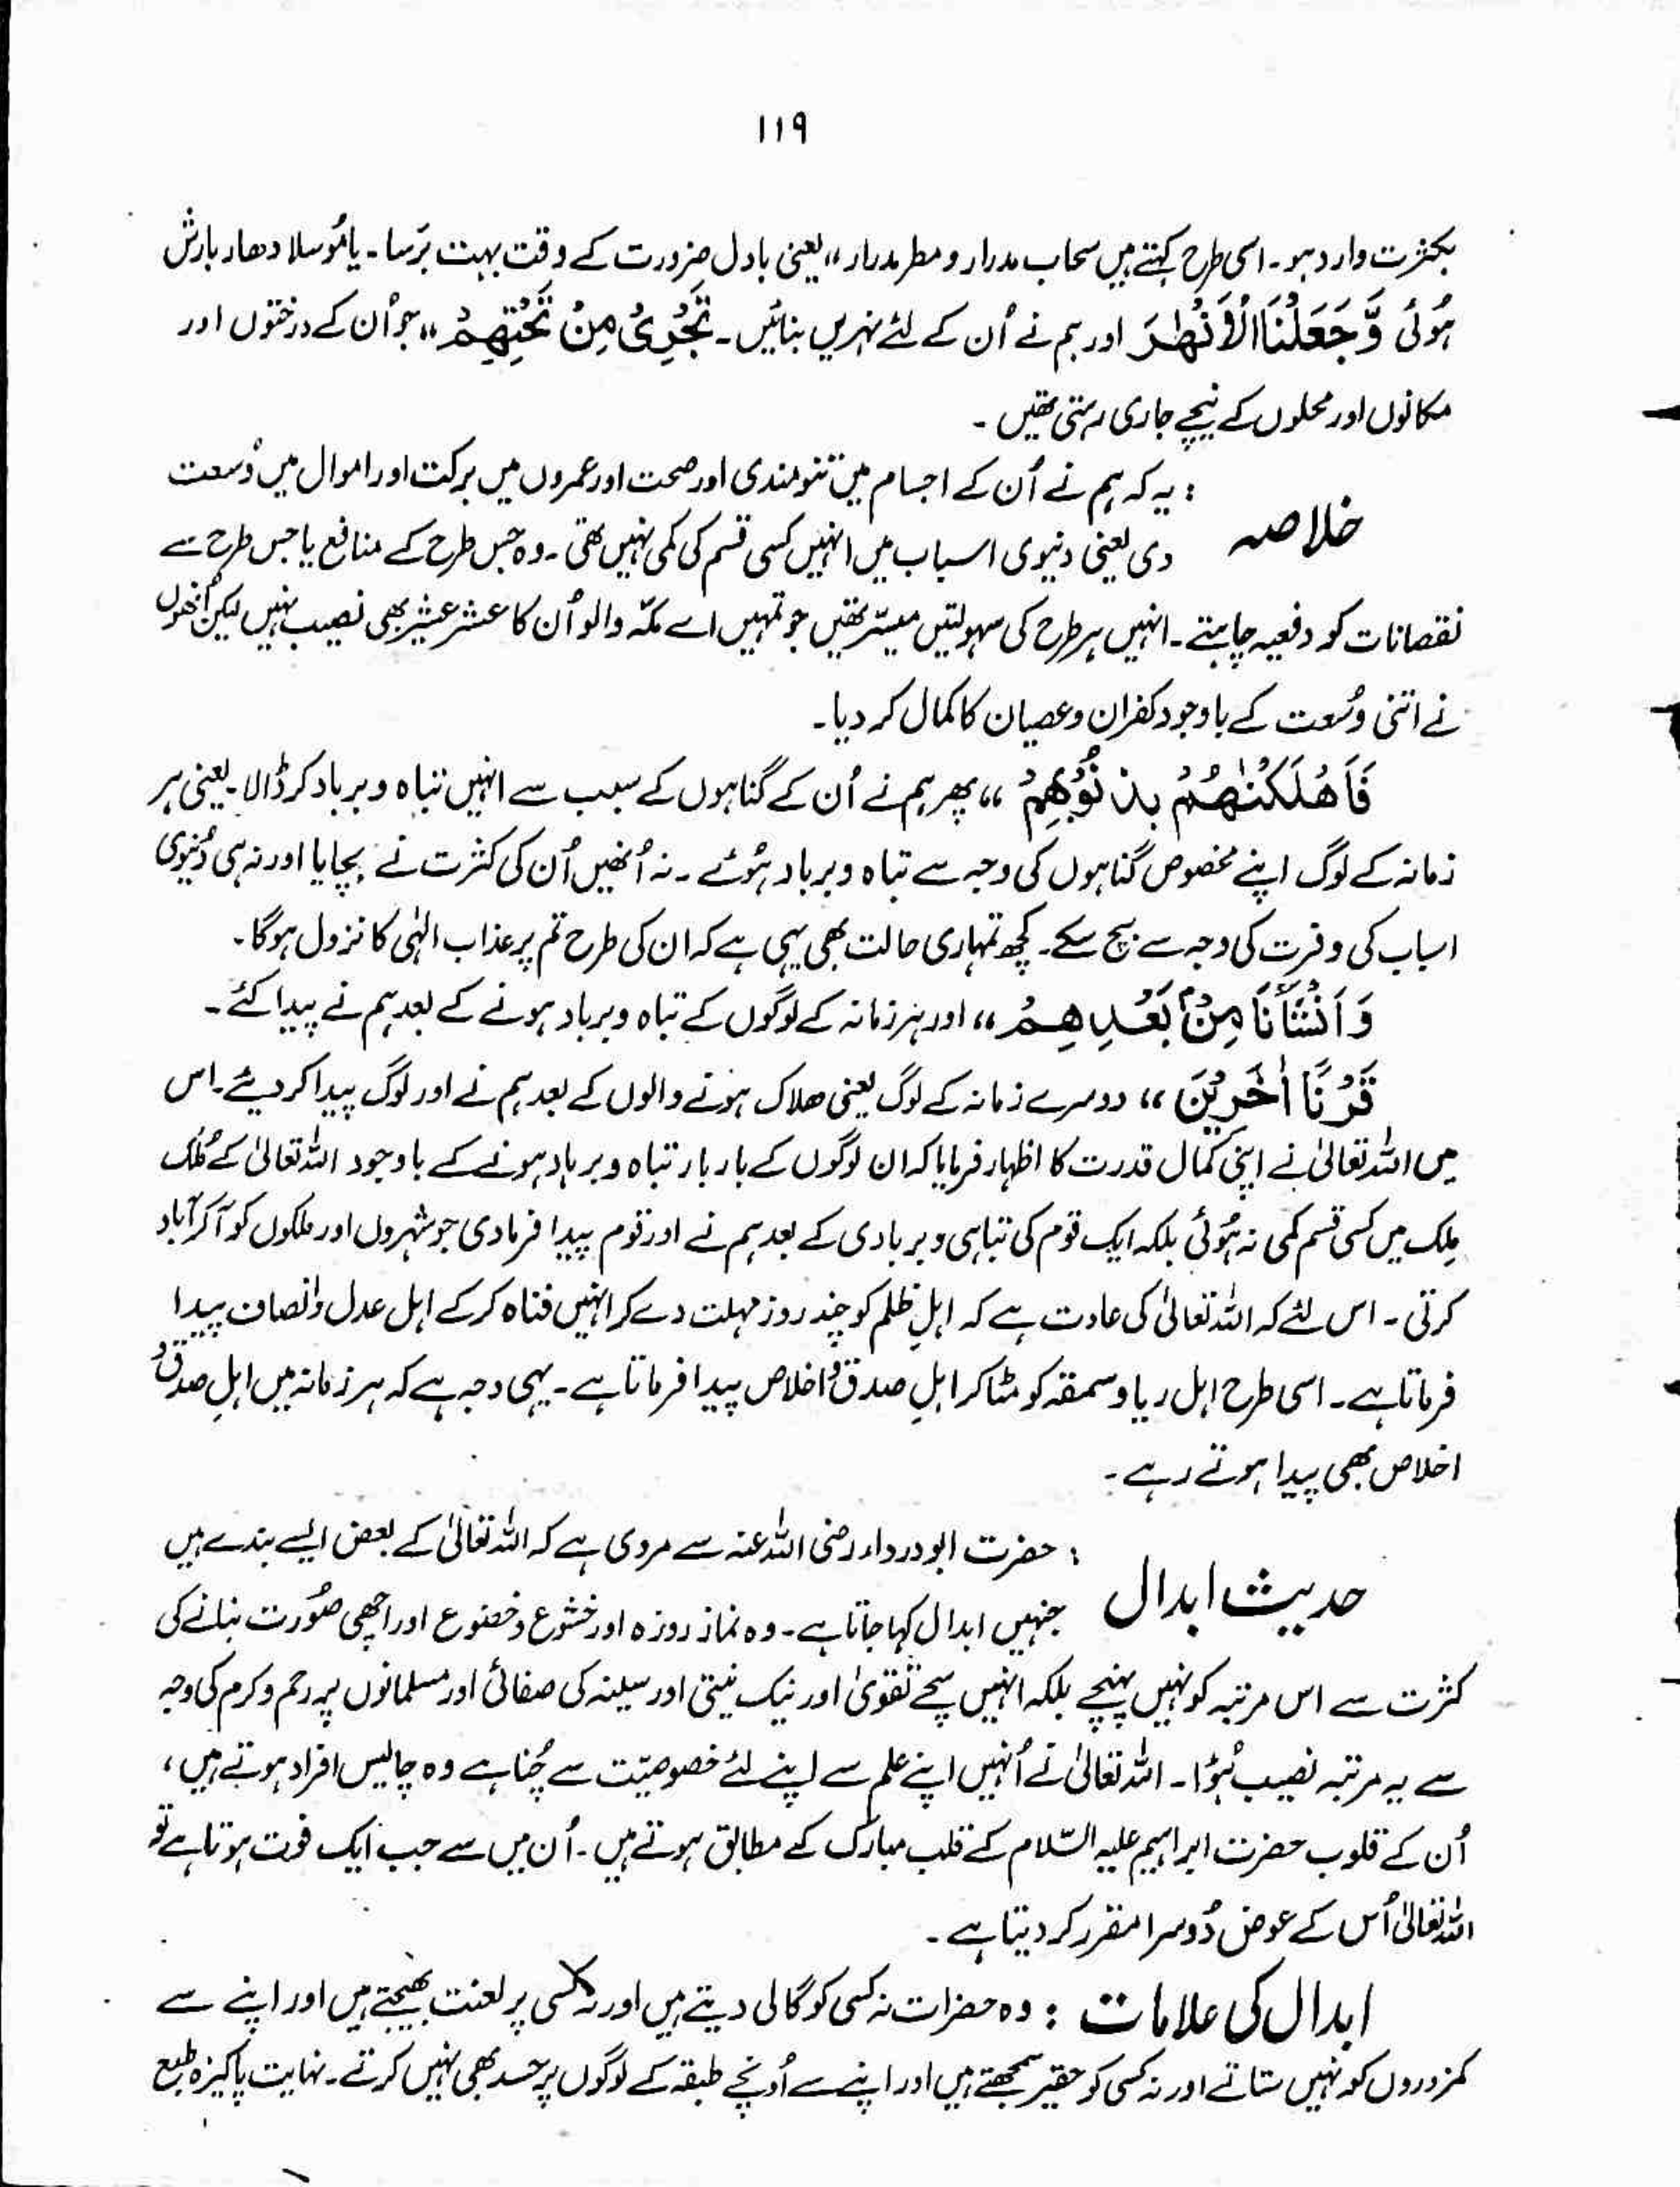 ۱۱۹
بکثرت وارد ہو۔ اسی طرح کہتے ہیں سحاب مدرار و مطر مدرار ،، یعنی بادل ضرورت کے وقت بہت برَسا۔ یا مُوسلا دھار بارش
ہُوئی وَّجَعَلْنَا الْاَنْھٰرَ اور ہم نے اُن کے لئے نہریں بنائیں۔ تَجْرِیْ مِنْ تَحْتِھِمْ ،، جو اُن کے درختوں اور
مکانوں اور محلوں کے نیچے جاری رہتی تھیں ۔
خلاصہ : یہ کہ ہم نے اُن کے اجسام میں تنومندی اور صحت اور عمروں میں برکت اور اموال میں وُسعت
دی یعنی دنیوی اسباب میں انہیں کسی قسم کی کمی نہیں تھی ۔ وہ جس طرح کے منافع یا جس طرح سے
نقصانات کو دفعیہ چاہتے ۔ انہیں ہر طرح کی سہولتیں میسّر تھیں جو تمہیں اے مکّہ والو اُن کا عشر عشیر بھی نصیب نہیں لیکن اُنھوں
نے اتنی وُسعت کے باوجود کفران و عصیان کا کمال کر دیا۔
فَاَھْلَکْنٰھُمْ بِذُنُوْبِھِمْ ،، پھر ہم نے اُن کے گناہوں کے سبب سے انہیں تباہ و برباد کر ڈالا ۔ یعنی ہر
زمانہ کے لوگ اپنے مخصوص گناہوں کی وجہ سے تباہ و برباد ہُوئے ۔ نہ اُنھیں اُن کی کثرت نے بچایا اور نہ ہی دُنیوی
اسباب کی وفرت کی وجہ سے بچ سکے۔ کچھ تمہاری حالت بھی یہی ہے کہ ان کی طرح تم پر عذاب الٰہی کا نزول ہوگا ۔
وَاَنْشَاْنَا مِنْۢ بَعْدِ ھِمْ ،، اور ہر زمانہ کے لوگوں کے تباہ و برباد ہونے کے بعد ہم نے پیدا کئے ۔
قَرْنًا اٰخَرِیْنَ ،، دوسرے زمانہ کے لوگ یعنی ھلاک ہونے والوں کے بعد ہم نے اور لوگ پیدا کر دیئے۔ اس
میں اللہ تعالیٰ نے اپنی کمال قدرت کا اظہار فرمایا کہ ان لوگوں کے بار بار تباہ و برباد ہونے کے باوجود اللہ تعالیٰ کے مُلک
مِلک میں کسی قسم کمی نہ ہُوئی بلکہ ایک قوم کی تباہی و بربادی کے بعد ہم نے اور قوم پیدا فرمادی جو شہروں اور ملکوں کو آ کر آباد
کرتی ۔ اس لئے کہ اللہ تعالیٰ کی عادت ہے کہ اہلِ ظلم کو چند روز مہلت دے کر انہیں فناہ کر کے اہل عدل و انصاف پیدا
فرماتا ہے ۔ اسی طرح اہل ریا و سمقہ کو مٹا کر اہلِ صدق و اخلاص پیدا فرماتا ہے ۔ یہی وجہ ہے کہ ہر زمانہ میں اہلِ صدق و
اخلاص بھی پیدا ہوتے رہے ۔
حدیث ابدال : حضرت ابودرداء رضی اللہ عنہ سے مروی ہے کہ اللہ تعالیٰ کے بعض ایسے بندے ہیں
جنہیں ابدال کہا جاتا ہے ۔ وہ نماز روزہ اور خشوع و خضوع اور اچھی صُورت بنانے کی
کثرت سے اس مرتبہ کو نہیں پہنچے بلکہ انہیں سچے تقویٰ اور نیک نیتی اور سینہ کی صفائی اور مسلمانوں پر رحم و کرم کی وجہ
سے یہ مرتبہ نصیب ہُؤا ۔ اللہ تعالیٰ نے اُنہیں اپنے علم سے اپنے لئے خصوصیّت سے چُنا ہے وہ چالیس افراد ہوتے ہیں ،
اُن کے قلوب حضرت ابراہیم علیہ السّلام کے قلب مبارک کے مطابق ہوتے ہیں ۔ اُن میں سے جب ایک فوت ہوتا ہے تو
اللہ تعالیٰ اُس کے عوض دُوسرا مقرر کر دیتا ہے ۔
ابدال کی علامات : وہ حضرات نہ کسی کو گالی دیتے ہیں اور نہ کسی پر لعنت بھیجتے ہیں اور اپنے سے
کمزوروں کو نہیں ستاتے اور نہ کسی کو حقیر سمجھتے ہیں اور اپنے سے اُونچے طبقہ کے لوگوں پر حسد بھی نہیں کرتے ۔ نہایت پاکیزہ طبع